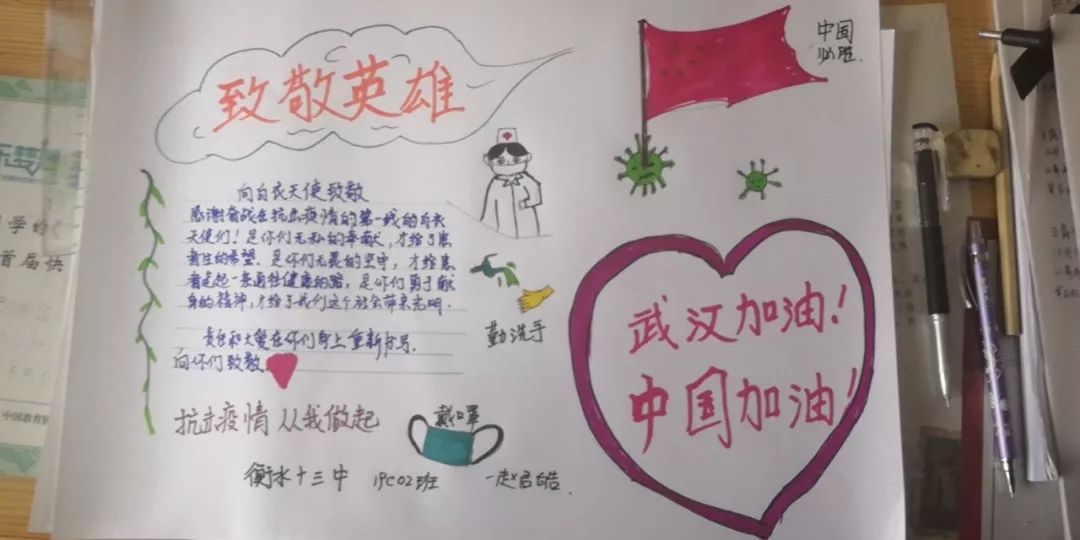 致敬英雄
中国
必胜.
向白衣天使致敬
感谢奋战在抗击疫情的第一线的白衣
天使们！是你们无私的奉献，才给了患
者生的希望．是你们无畏的坚守，才给患
者走起一条通往健康的路，是你们勇于献
身的精神，才给了我们这个社会带来光明．
责任和大爱在你们身上重新
向你们致敬
勤洗手
武汉加油！
中国加油！
抗击疫情 从我做起
戴口罩
衡水十三中 19C02班 君皓．
学的
首届快
中国教育